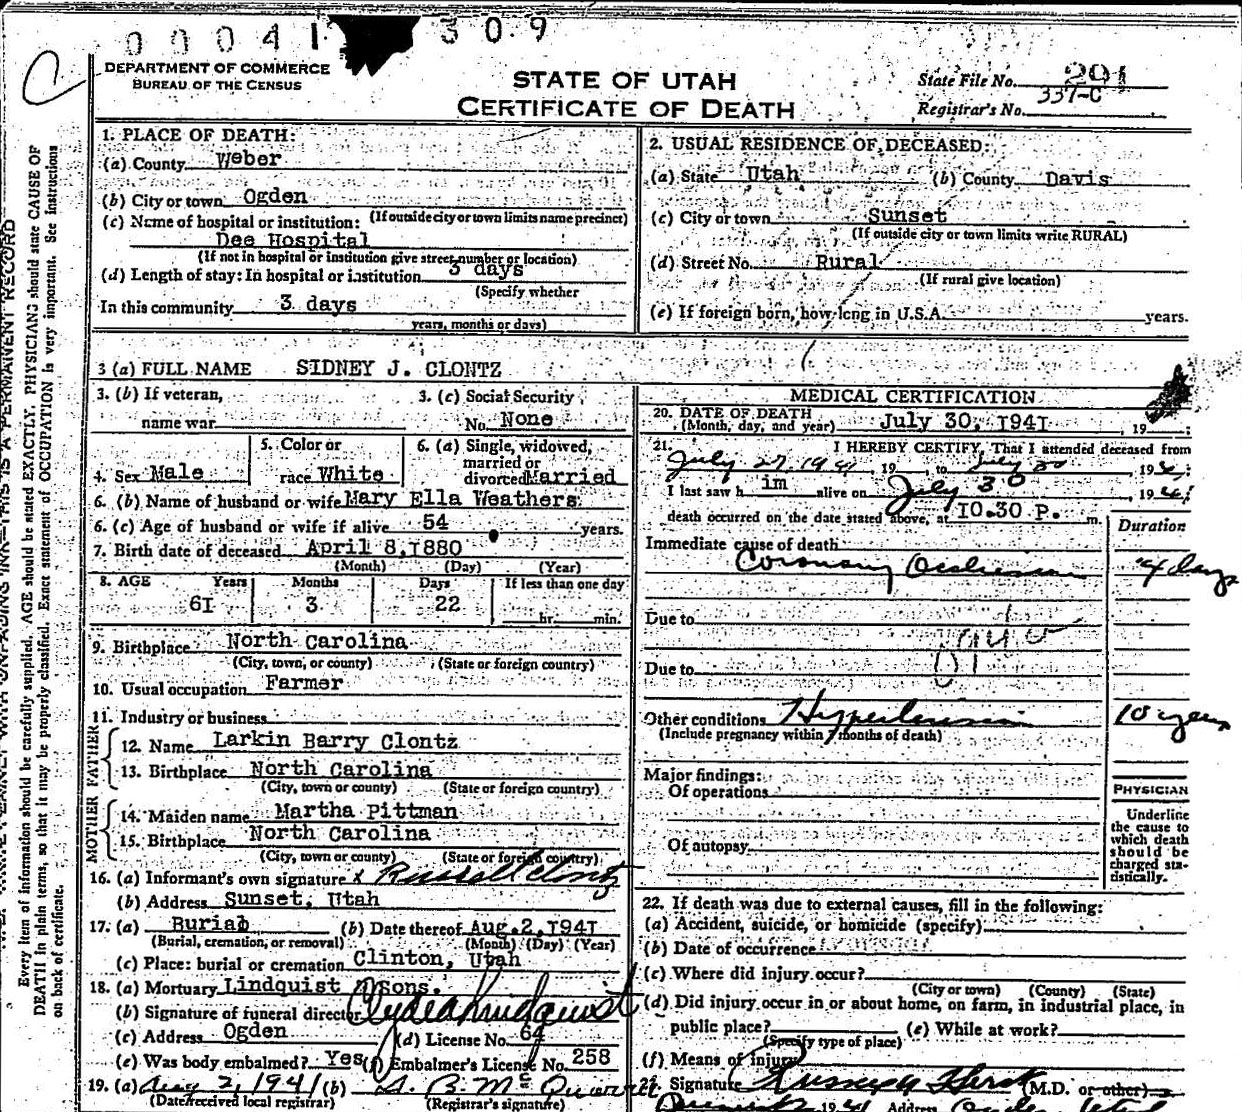 0 0 0 4 1 3 0 9
DEPARTMENT OF COMMERCE
BUREAU OF THE CENSUS
STATE OF UTAH
CERTIFICATE OF DEATH
State File No. 291
337-C
Registrar's No.
1. PLACE OF DEATH:
(a) County Weber
(b) City or town Ogden
(If outside city or town limits name precinct)
(c) Name of hospital or institution:
Dee Hospital
(If not in hospital or institution give street number or location)
(d) Length of stay: In hospital or institution 3 days
(Specify whether
In this community 3 days
years, months or days)
2. USUAL RESIDENCE OF DECEASED:
(a) State Utah (b) County Davis
(c) City or town Sunset
(If outside city or town limits write RURAL)
(d) Street No. Rural
(If rural give location)
(e) If foreign born, how long in U.S.A. years.
3 (a) FULL NAME SIDNEY J. CLONTZ
3. (b) If veteran,
name war
3. (c) Social Security
No. None
4. Sex Male
5. Color or
race White
6. (a) Single, widowed,
married or
divorced Married
6. (b) Name of husband or wife Mary Ella Weathers
6. (c) Age of husband or wife if alive 54 years.
7. Birth date of deceased April 8, 1880
(Month) (Day) (Year)
8. AGE Years Months Days If less than one day
61 3 22 hr. min.
9. Birthplace North Carolina
(City, town, or county) (State or foreign country)
10. Usual occupation Farmer
11. Industry or business
FATHER
12. Name Larkin Barry Clontz
13. Birthplace North Carolina
(City, town or county) (State or foreign country)
MOTHER
14. Maiden name Martha Pittman
15. Birthplace North Carolina
(City, town or county) (State or foreign country)
16. (a) Informant's own signature x Russell Clontz
(b) Address Sunset, Utah
17. (a) Burial (b) Date thereof Aug. 2, 1941
(Burial, cremation, or removal) (Month) (Day) (Year)
(c) Place: burial or cremation Clinton, Utah
18. (a) Mortuary Lindquist & Sons.
(b) Signature of funeral director Clyde Lindquist
(c) Address Ogden (d) License No. 64
(e) Was body embalmed? Yes (f) Embalmer's License No. 258
19. (a) Aug 2, 1941 (b)
(Date received local registrar) (Registrar's signature)
MEDICAL CERTIFICATION
20. DATE OF DEATH
(Month, day, and year) July 30, 1941, 19
21. I HEREBY CERTIFY, That I attended deceased from
July 27, 1941, 19 , to July 30 1941;
I last saw him alive on July 30, 1941;
death occurred on the date stated above, at 10.30 P. m.
Duration
Immediate cause of death
Coronary Occlusion 4 days
Due to
Due to
Other conditions Hypertension 10 years
(Include pregnancy within 3 months of death)
Major findings:
Of operations
Of autopsy
PHYSICIAN
Underline
the cause to
which death
should be
charged sta-
tistically.
22. If death was due to external causes, fill in the following:
(a) Accident, suicide, or homicide (specify)
(b) Date of occurrence
(c) Where did injury occur?
(City or town) (County) (State)
(d) Did injury occur in or about home, on farm, in industrial place, in
public place? (e) While at work?
(Specify type of place)
(f) Means of injury
Signature (M.D. or other)
1941 Address
Every item of information should be carefully supplied. AGE should be stated EXACTLY. PHYSICIANS should state CAUSE OF
DEATH in plain terms, so that it may be properly classified. Exact statement of OCCUPATION is very important. See instructions
on back of certificate.
THIS IS A PERMANENT RECORD